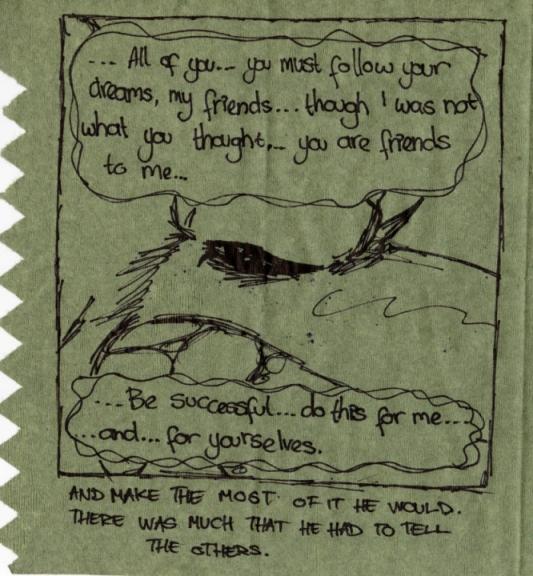 ... All of you... you must follow your
dreams, my friends... though I was not
what you thought... you are friends
to me...
....Be successful... do this for me...
...and... for yourselves.
AND MAKE THE MOST OF IT HE WOULD.
THERE WAS MUCH THAT HE HAD TO TELL
THE OTHERS.